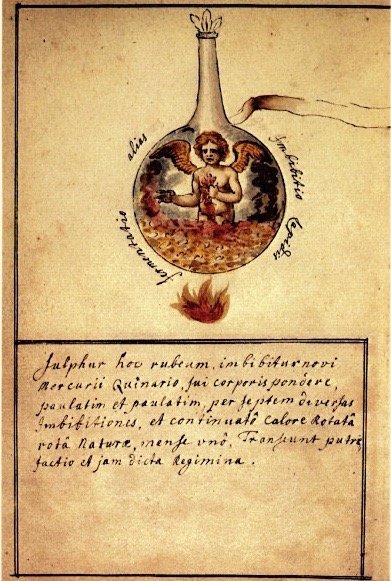 alias
Imbibitio
Lapidis
fermentatio
Sulphur hoc rubeum, imbibitur novi
Mercurii Quinario, sui corporis pondere,
paulatim et paulatim, per septem diversas
Imbibitiones, et continuatô Calore Rotatâ
rotâ Naturæ, mense vnô, Transeunt putre,
factio et jam dicta Regimina.